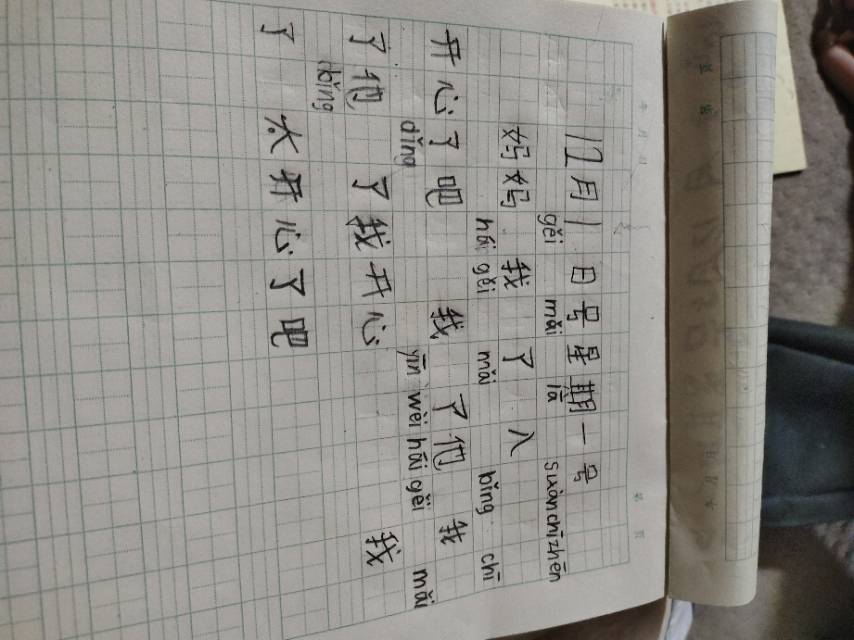 12月1日号星期一号
gěi mǎi là suànchīzhēn
妈妈 我 了 入
hǎi gěi mǎi bǐng chī
开心了吧 我 了们 我
dǐng yīn wèi hǎi gěi mǎi
了们 了我开心 我
bǐng
了 太开心了吧